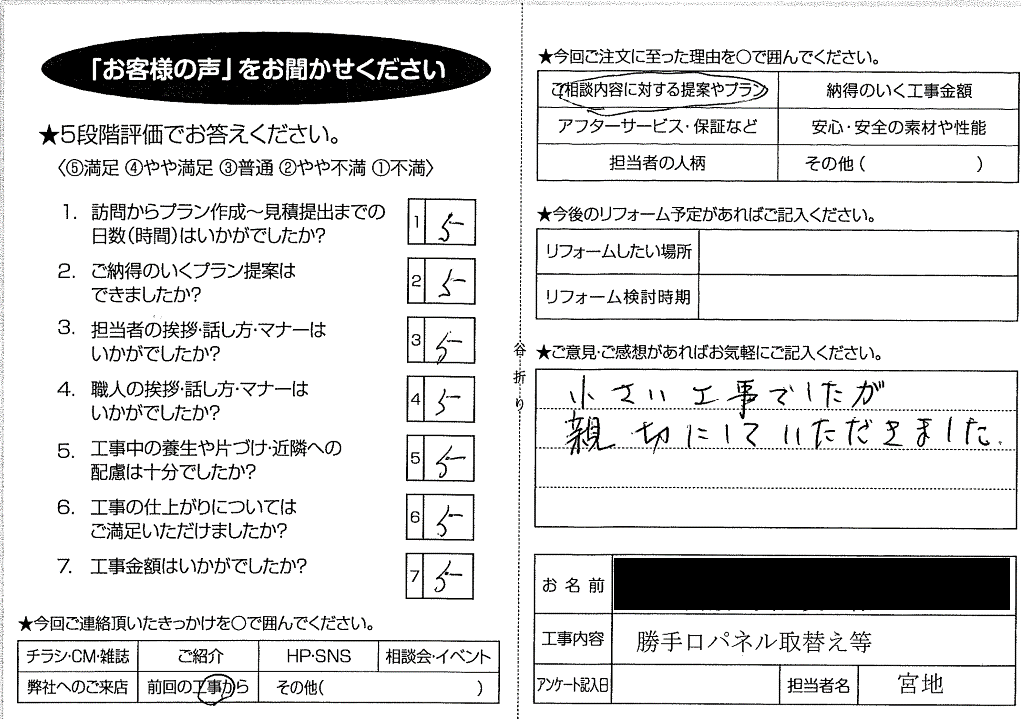 「お客様の声」をお聞かせください
★5段階評価でお答えください。
〈⑤満足 ④やや満足 ③普通 ②やや不満 ①不満〉
1. 訪問からプラン作成〜見積提出までの
日数(時間)はいかがでしたか?
1 5
2. ご納得のいくプラン提案は
できましたか?
2 5
3. 担当者の挨拶・話し方・マナーは
いかがでしたか?
3 5
4. 職人の挨拶・話し方・マナーは
いかがでしたか?
4 5
5. 工事中の養生や片づけ・近隣への
配慮は十分でしたか?
5 5
6. 工事の仕上がりについては
ご満足いただけましたか?
6 5
7. 工事金額はいかがでしたか?
7 5
★今回ご連絡頂いたきっかけを〇で囲んでください。
チラシ・CM・雑誌 ご紹介 HP・SNS 相談会・イベント
弊社へのご来店 前回の工事から その他( )
谷折り
★今回ご注文に至った理由を〇で囲んでください。
ご相談内容に対する提案やプラン 納得のいく工事金額
アフターサービス・保証など 安心・安全の素材や性能
担当者の人柄 その他( )
★今後のリフォーム予定があればご記入ください。
リフォームしたい場所
リフォーム検討時期
★ご意見・ご感想があればお気軽にご記入ください。
小さい工事でしたが
親切にしていただきました.
お名前
工事内容 勝手口パネル取替え等
アンケート記入日 担当者名 宮地